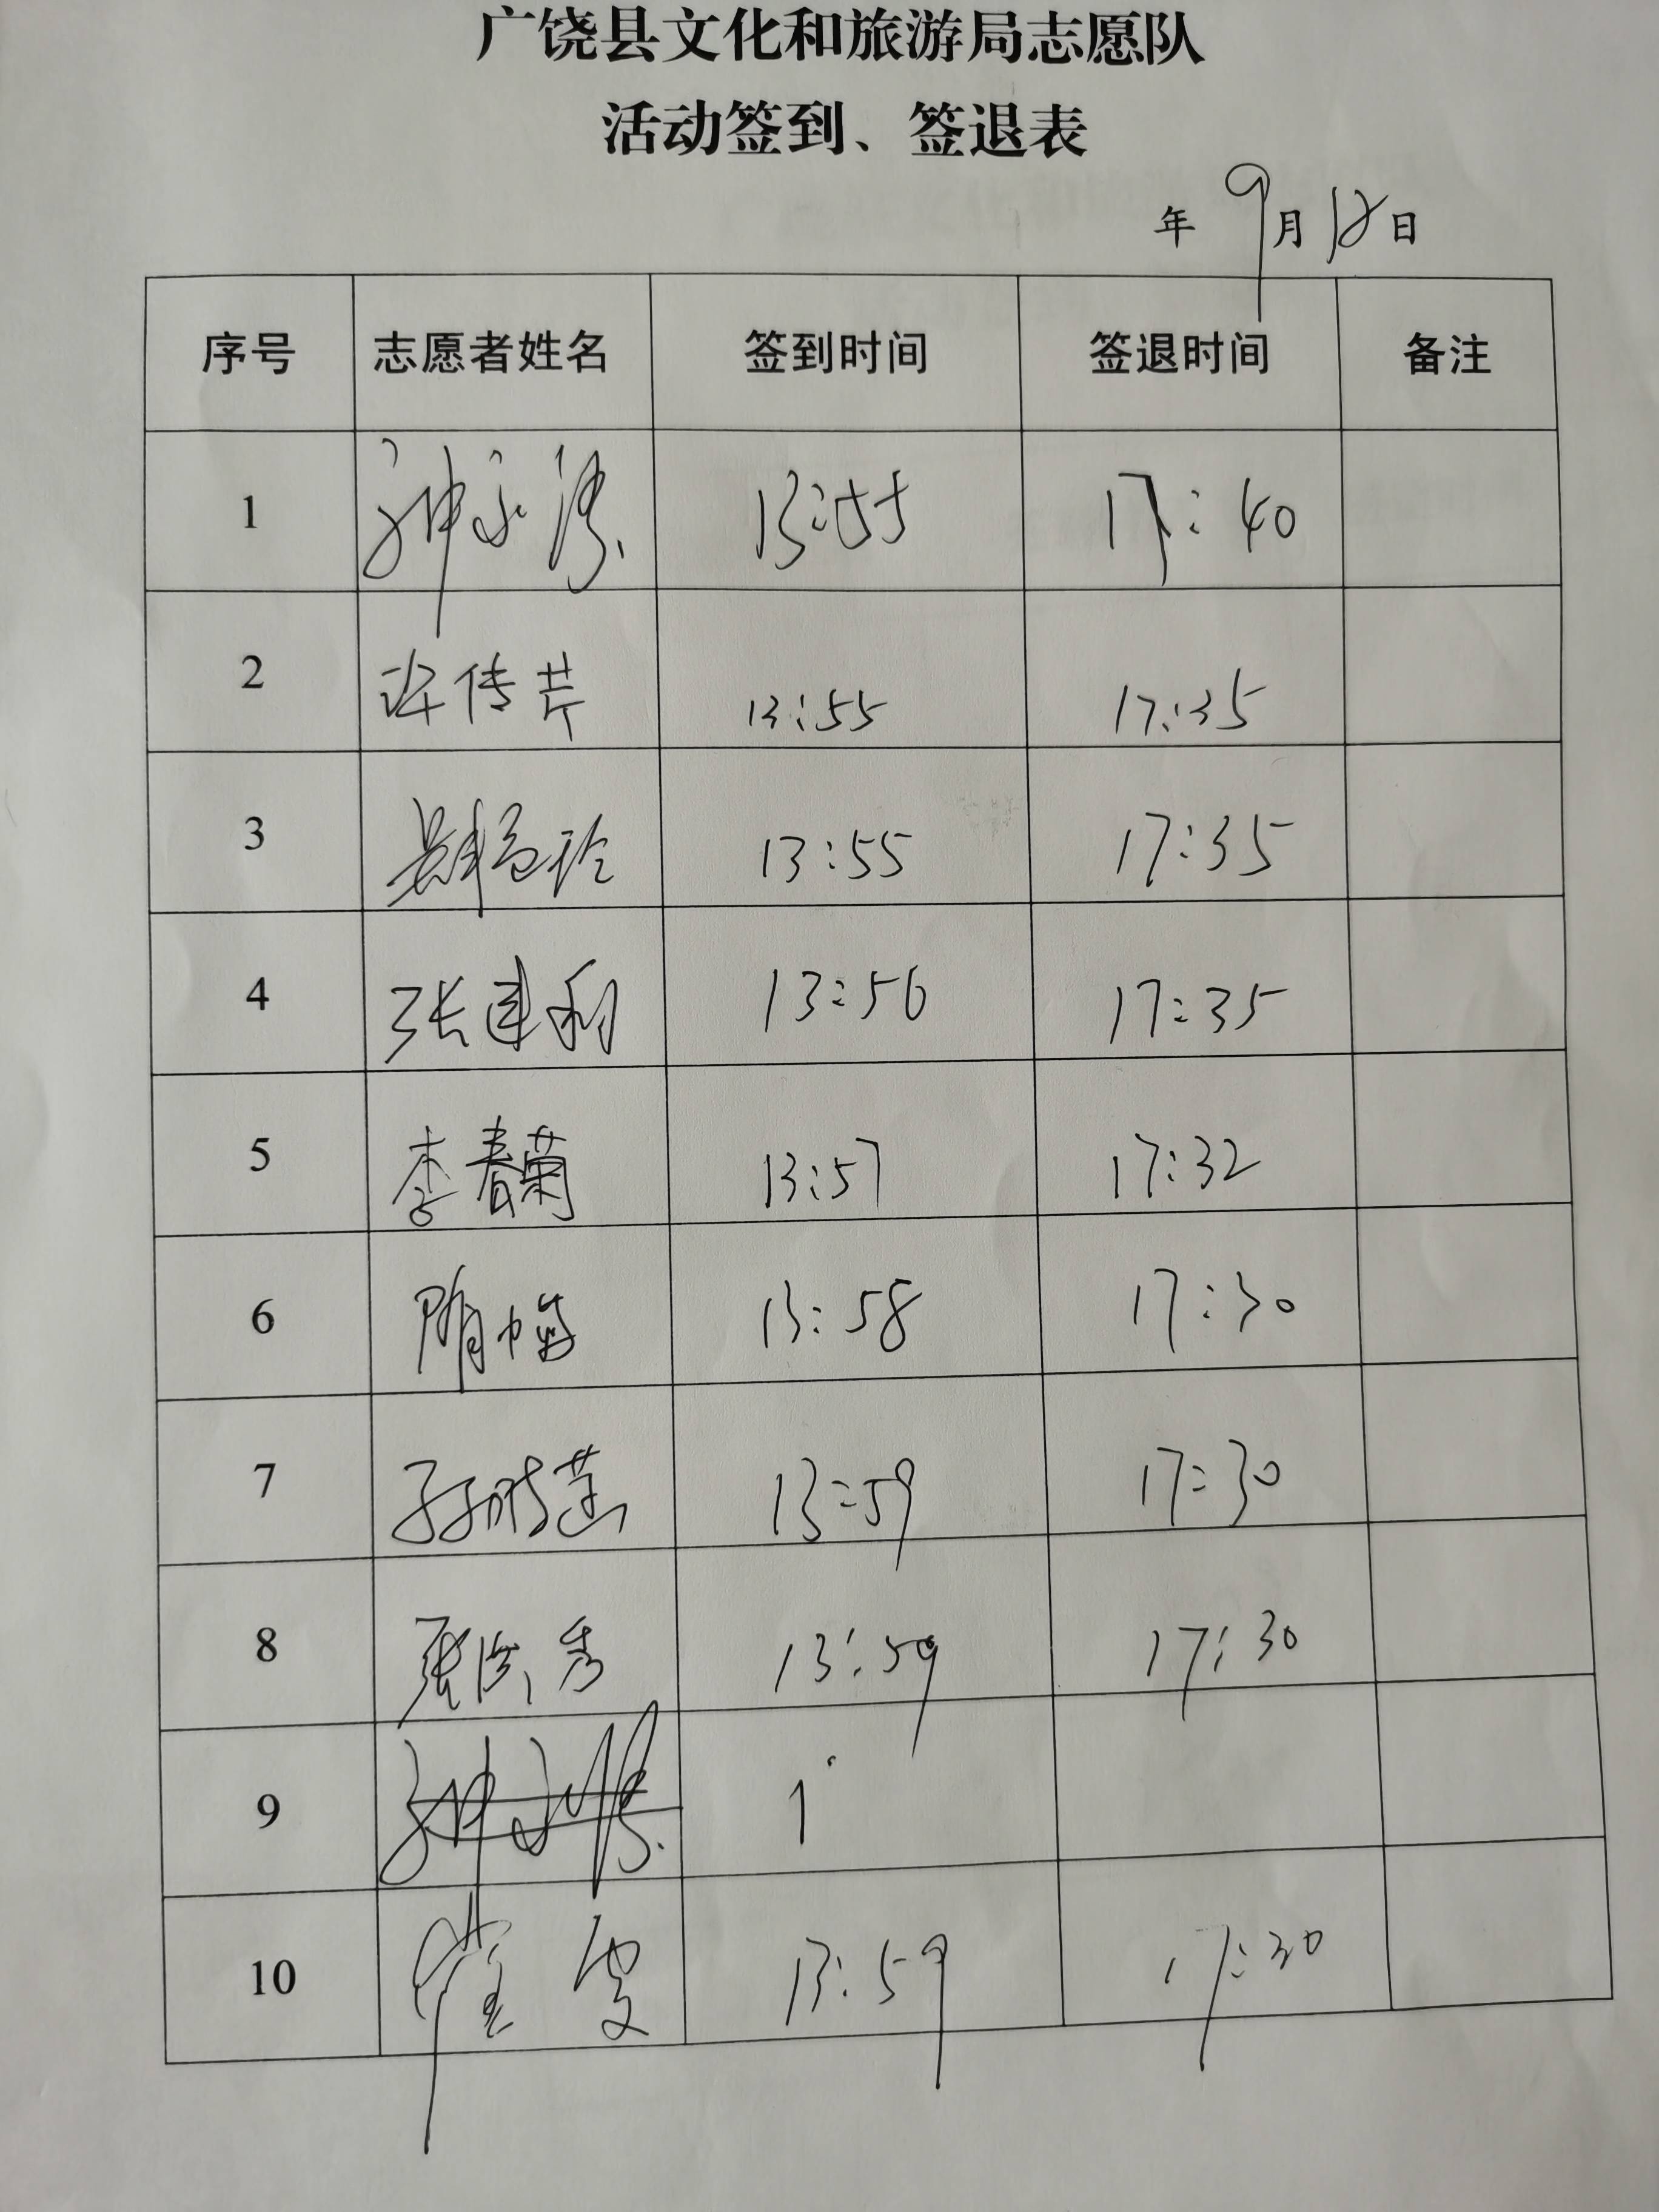 广饶县文化和旅游局志愿队
活动签到、签退表
年 9月18日
序号 志愿者姓名 签到时间 签退时间 备注
1 13:55 17:40
2 许传芹 13:55 17:35
3 13:55 17:35
4 张建利 13:56 17:35
5 李春菊 13:57 17:32
6 隋 13:58 17:30
7 孙 13:59 17:30
8 张洪秀 13:59 17:30
9 1
10 崔雯 13:59 17:30